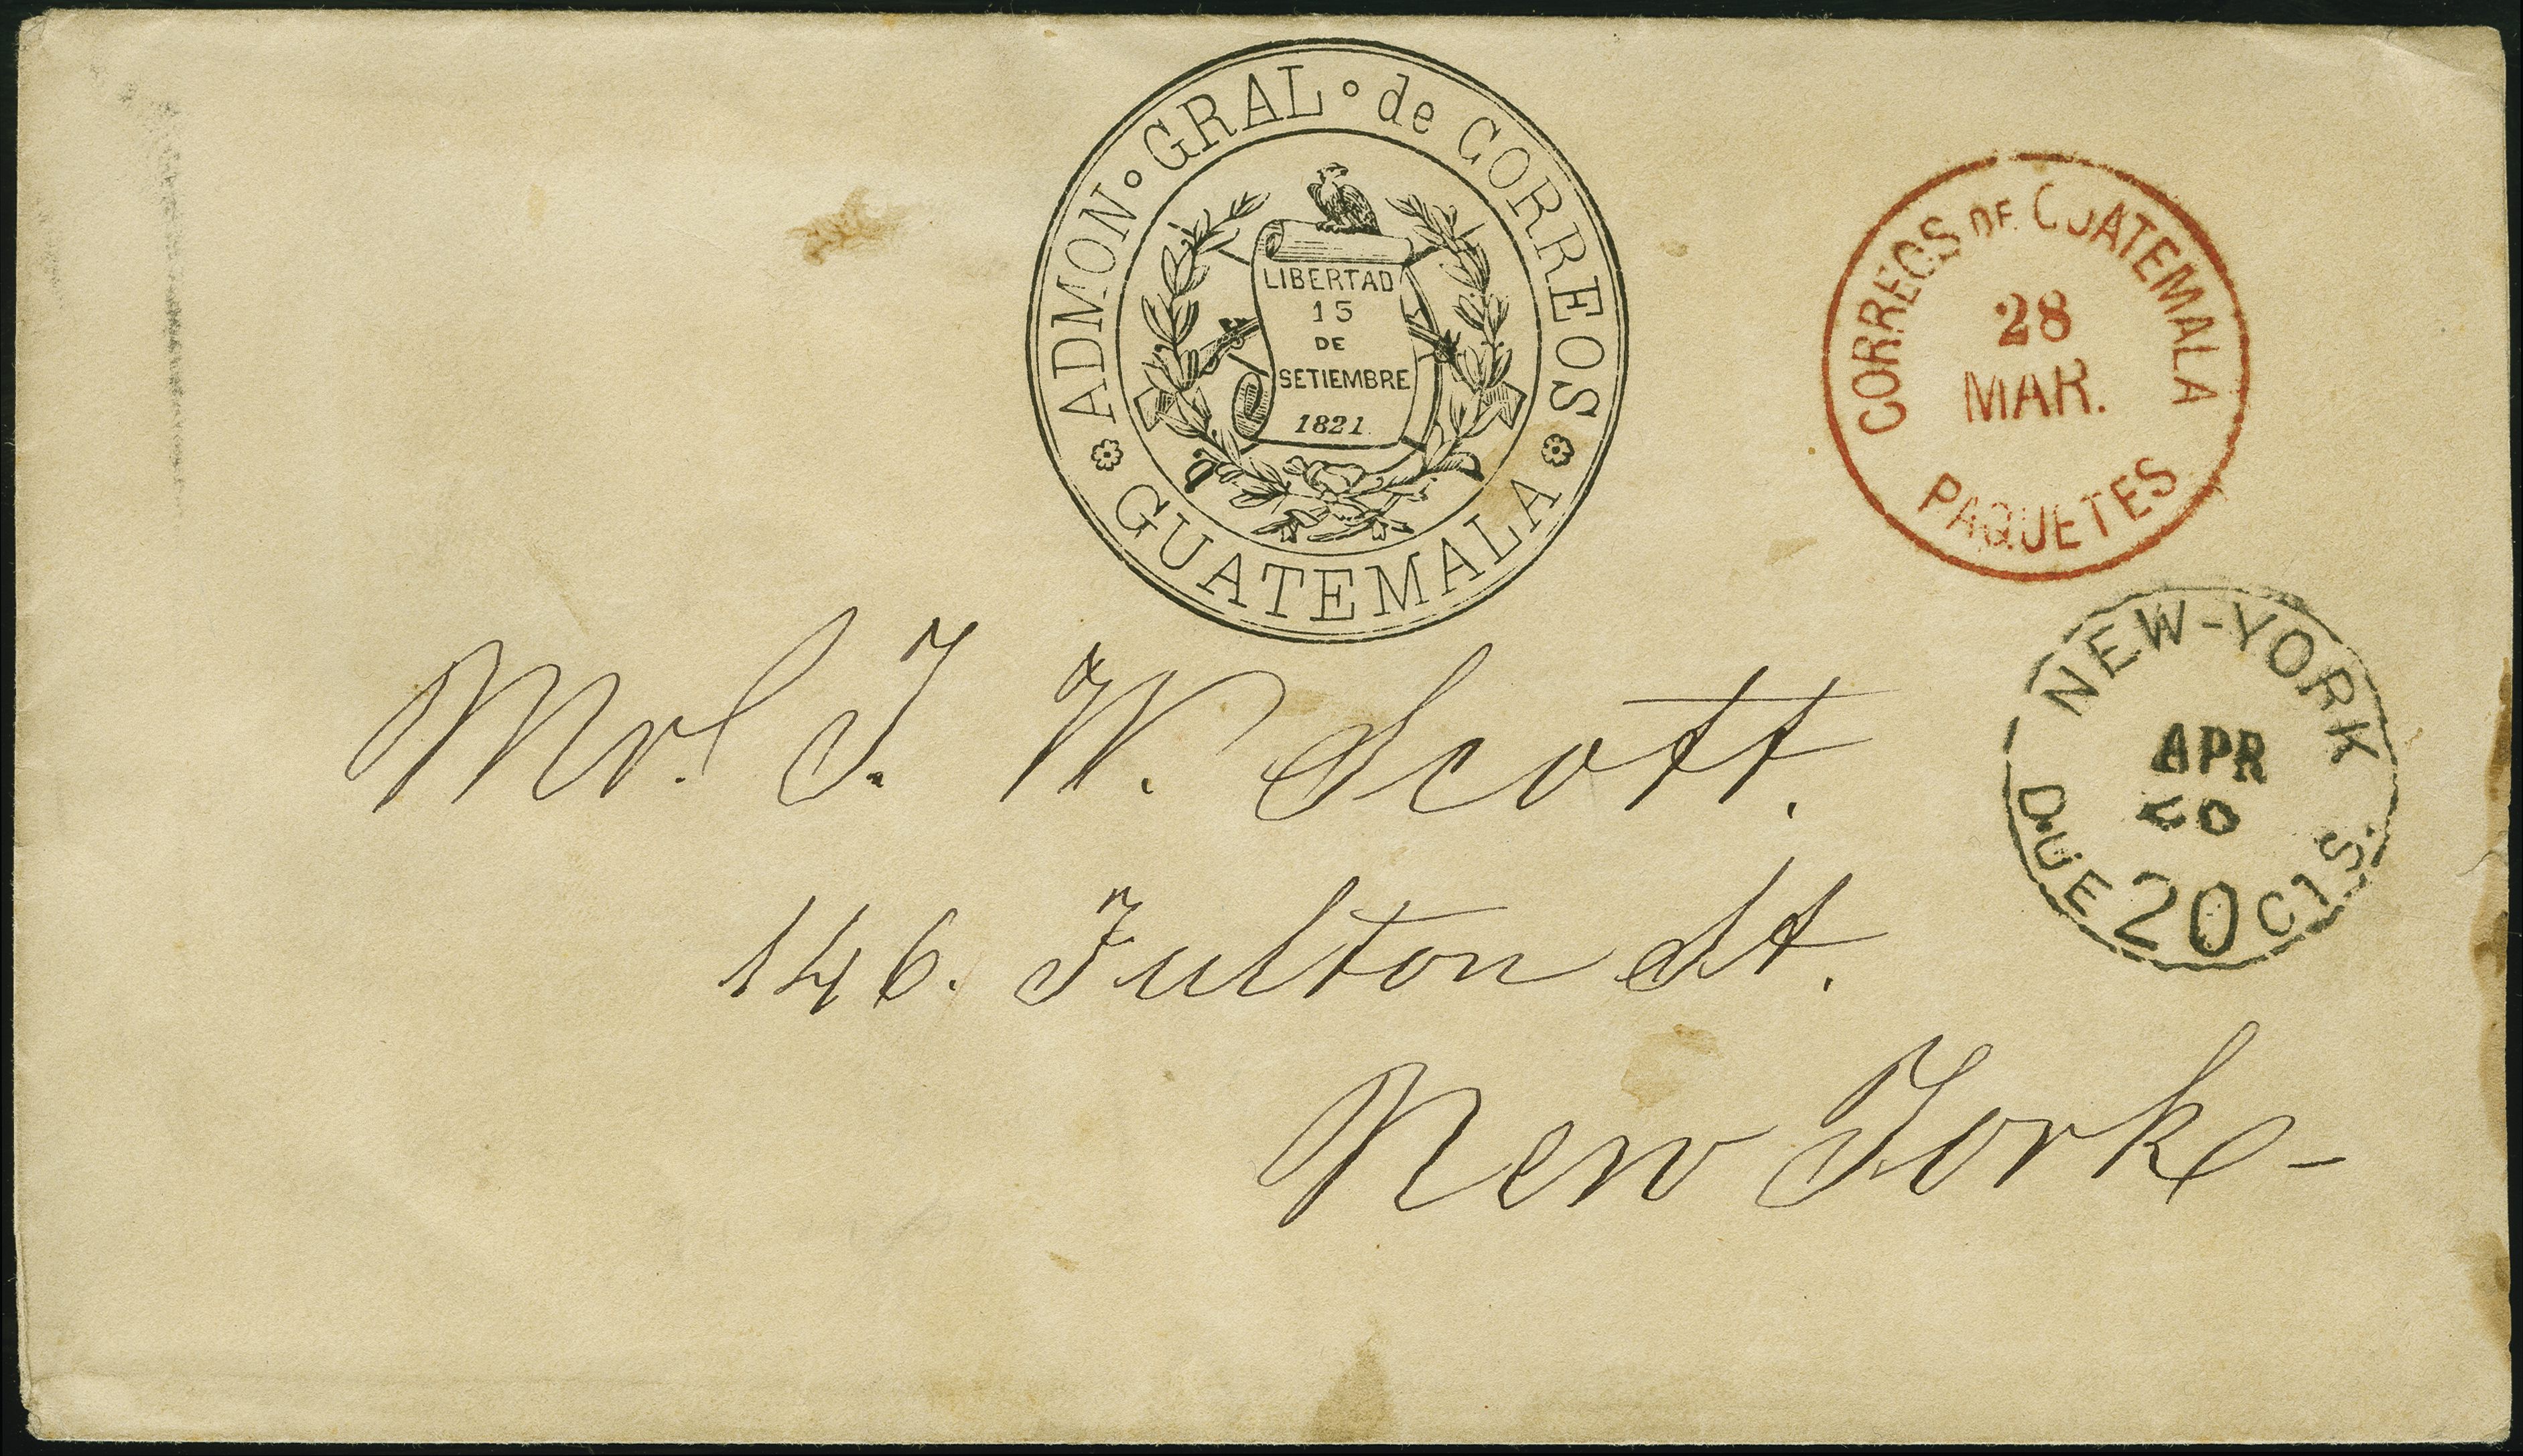 ADMON◦GRAL◦de CORREOS
GUATEMALA
LIBERTAD
15
DE
SETIEMBRE
1821
CORREOS DE GUATEMALA
28
MAR.
PAQUETES
NEW-YORK
APR
DUE 20 CTS.
Mr. J. W. Scott.
146. Fulton St.
New York -